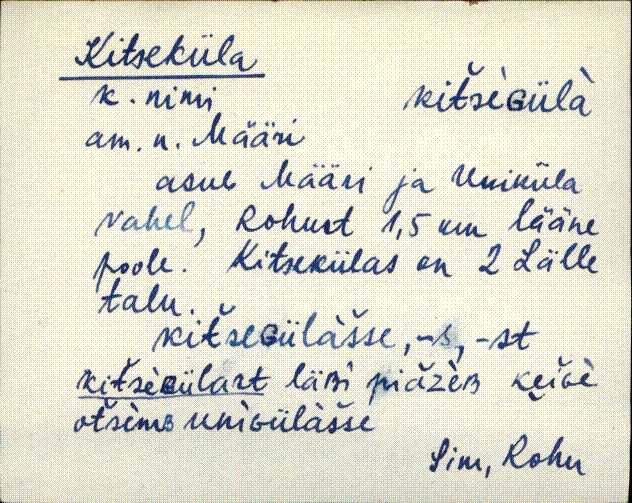 Kitseküla
k. nimi kitšèGülà
am. n. Määri
asub Määri ja Uniküla
vahel, Rohust 1,5 km lääne
poole. Kitsekülas on 2 Lälle
talu.
kitšeGülàšse, -s, -st
kitšèGülast läBì piàžèB keìGè
otšèmB unìGülàšse
Sim, Rohu